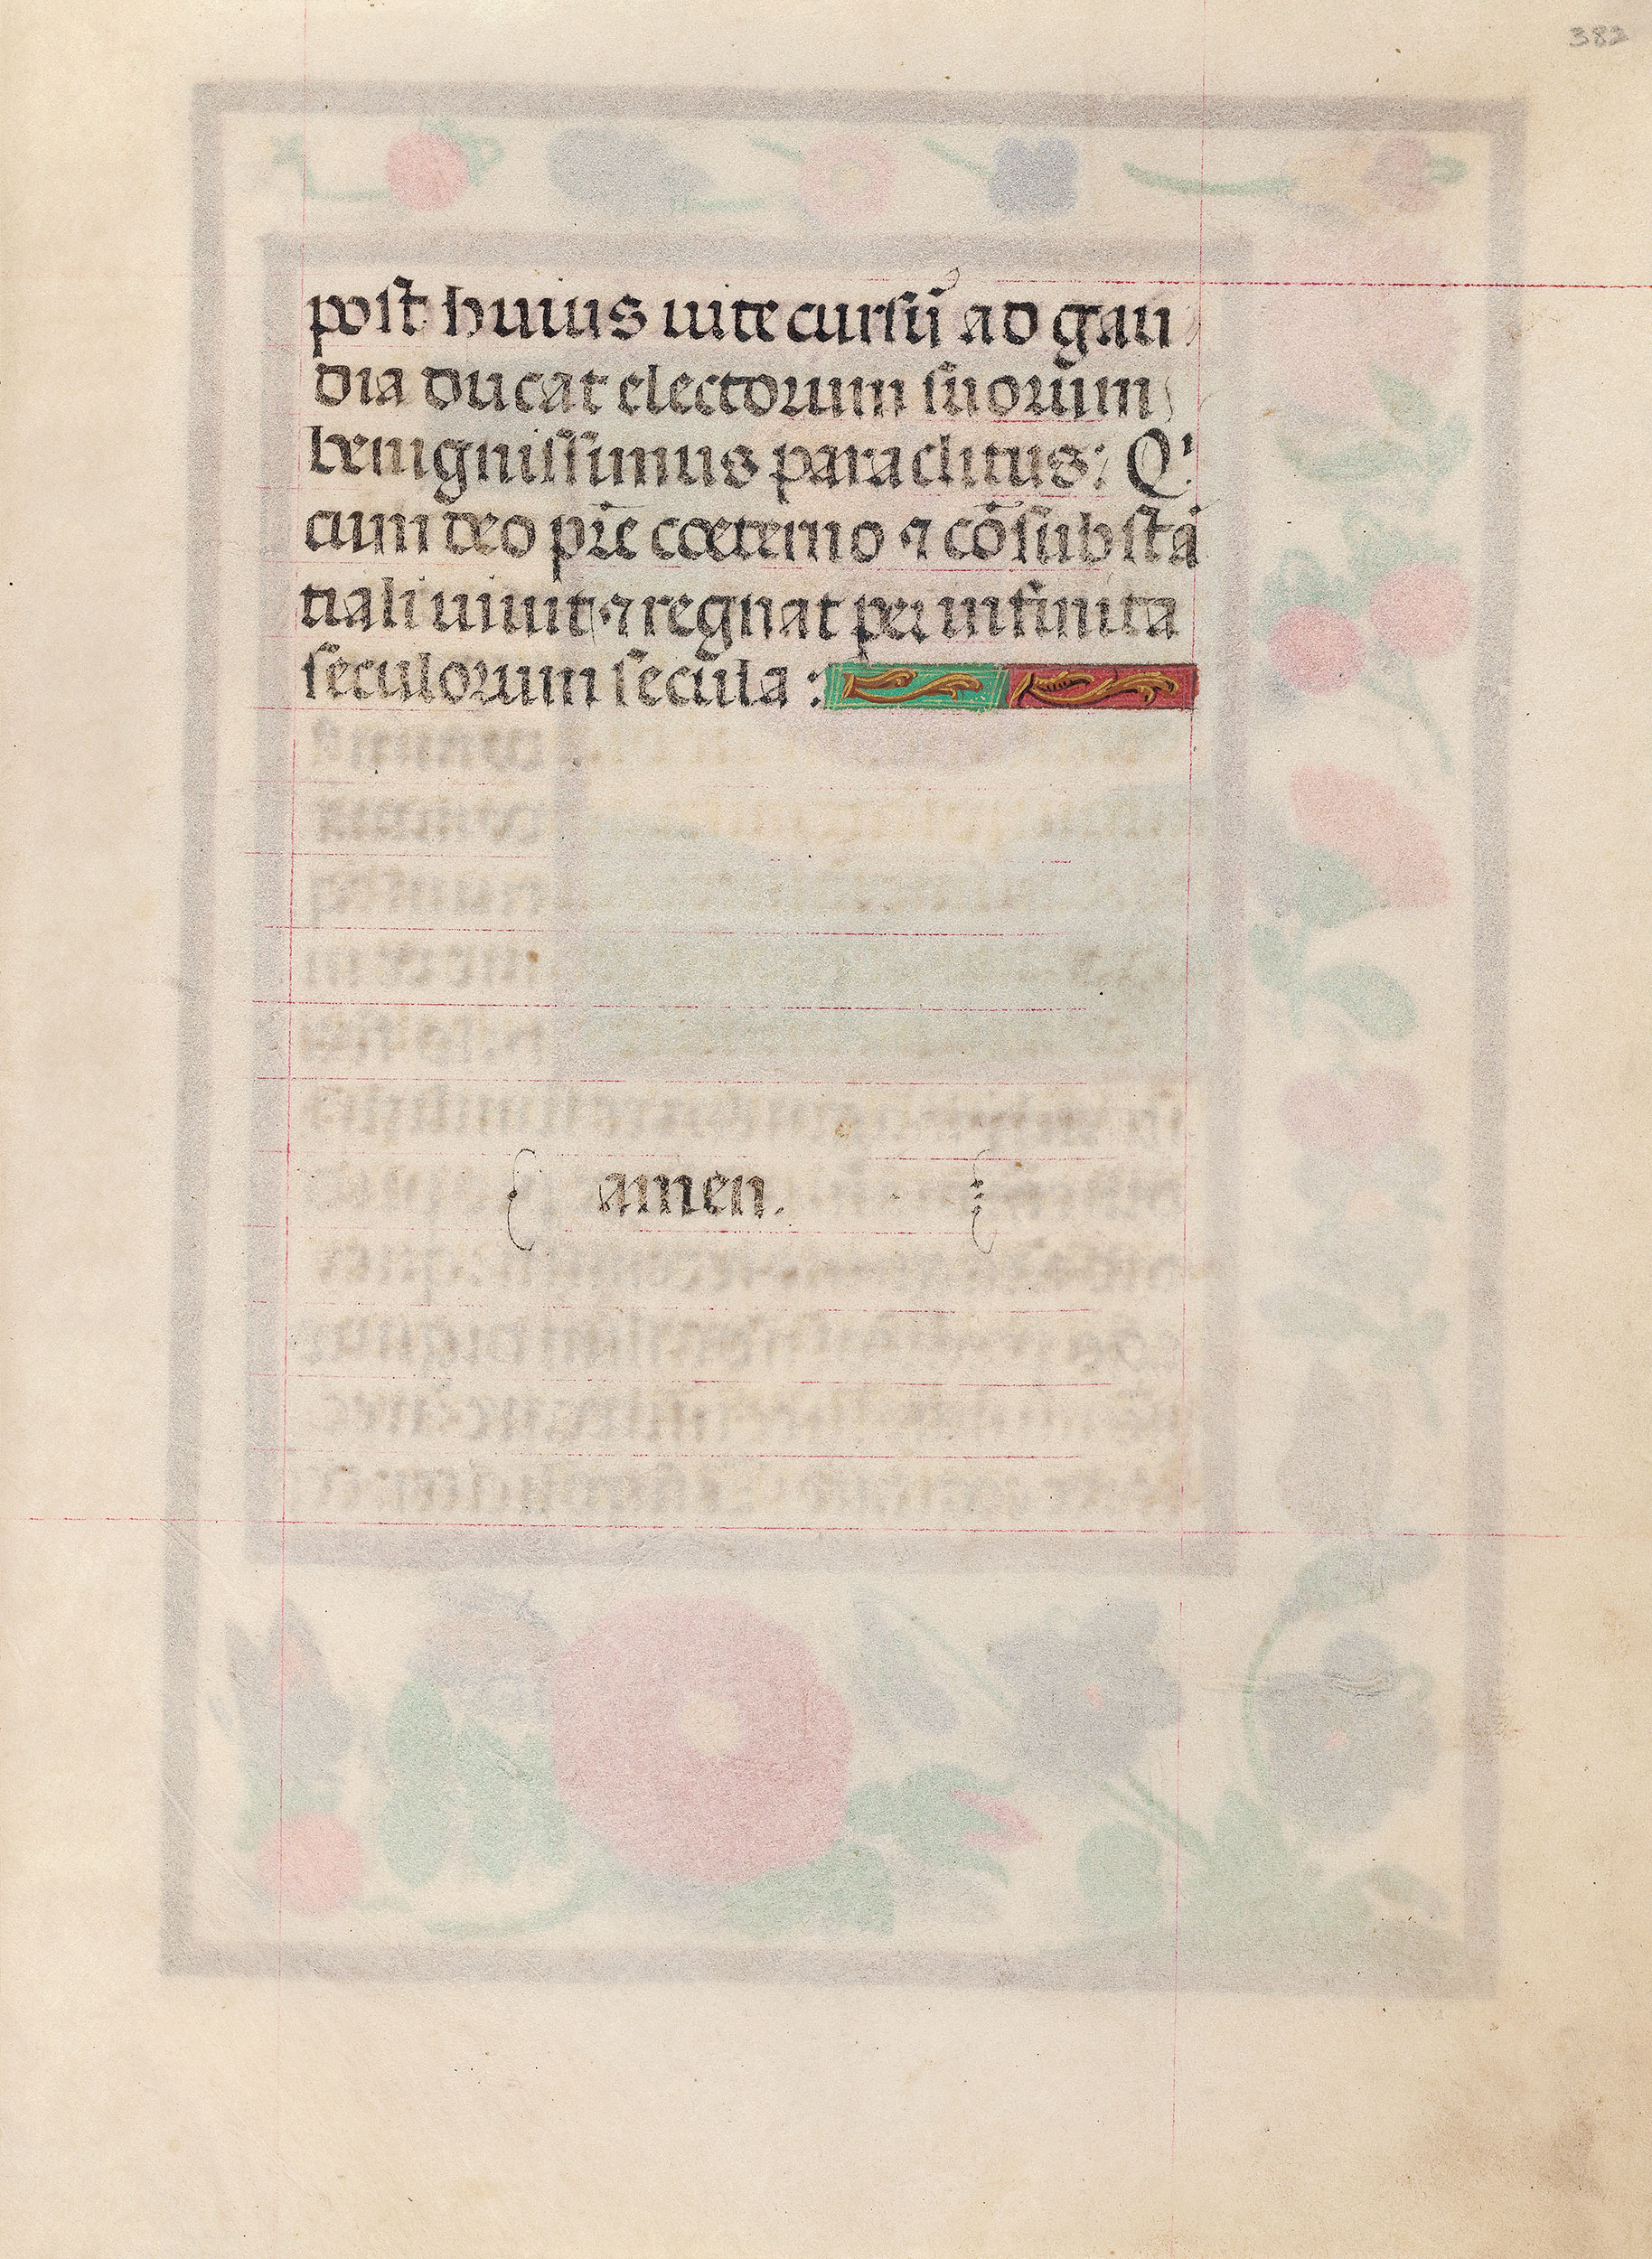 382
post huius uite cursū ad gau
dia ducat electorum suorum
benignissimus paraclitus: Q'
cum deo pr̄e coeterno ⁊ cōsubstā
tiali uiuit ⁊ regnat per infinita
seculorum secula :
amen.